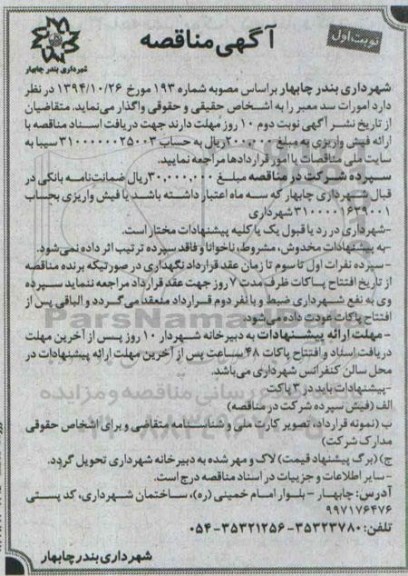 نوبت اول
آگهی مناقصه
شهرداری بندر چابهار
شهرداری بندر چابهار براساس مصوبه شماره ۱۹۳ مورخ ۱۳۹۴/۱۰/۲۶ در نظر
دارد امورات سد معبر را به اشخاص حقیقی و حقوقی واگذار می‌نماید. متقاضیان
از تاریخ نشر آگهی نوبت دوم ۱۰ روز مهلت دارند جهت دریافت اسناد مناقصه با
ارائه فیش واریزی به مبلغ ۲۰۰,۰۰۰ ریال به حساب ۳۱۰۰۰۰۰۰۲۵۰۰۳ سیبا به
سایت ملی مناقصات یا امور قراردادها مراجعه نمایید.
سپرده شرکت در مناقصه مبلغ ۳۰,۰۰۰,۰۰۰ ریال ضمانت‌نامه بانکی در
قبال شهرداری چابهار که سه ماه اعتبار داشته باشد یا فیش واریزی بحساب
۳۱۰۰۰۰۱۶۲۹۰۰۱ شهرداری
-شهرداری در رد یا قبول یک یا کلیه پیشنهادات مختار است.
-به پیشنهادات مخدوش، مشروط، ناخوانا و فاقد سپرده ترتیب اثر داده نمی‌شود.
-سپرده نفرات اول تا سوم تا زمان عقد قرارداد نگهداری در صورتیکه برنده مناقصه
از تاریخ افتتاح پاکات ظرف مدت ۷ روز جهت عقد قرارداد مراجعه ننماید سپرده
وی به نفع شهرداری ضبط و با نفر دوم قرارداد منعقد می‌گردد و الباقی پس از
افتتاح پاکات عودت داده می‌شود.
-مهلت ارائه پیشنهادات به دبیرخانه شهردار ۱۰ روز پس از آخرین مهلت
دریافت اسناد و افتتاح پاکات ۴۸ ساعت پس از آخرین مهلت ارائه پیشنهادات در
محل سالن کنفرانس شهرداری می‌باشد.
-پیشنهادات باید در ۳ پاکت
الف (فیش سپرده شرکت در مناقصه)
ب (نمونه قرارداد، تصویر کارت ملی و شناسنامه متقاضی و برای اشخاص حقوقی
مدارک شرکت)
ج) (برگ پیشنهاد قیمت) لاک و مهر شده به دبیرخانه شهرداری تحویل گردد.
-سایر اطلاعات و جزییات در اسناد مناقصه درج است.
آدرس: چابهار - بلوار امام خمینی (ره)، ساختمان شهرداری، کد پستی
۹۹۷۱۷۶۴۷۶
تلفن: ۳۵۳۲۳۷۸۰-۳۵۳۲۱۲۵۶-۰۵۴
شهرداری بندر چابهار